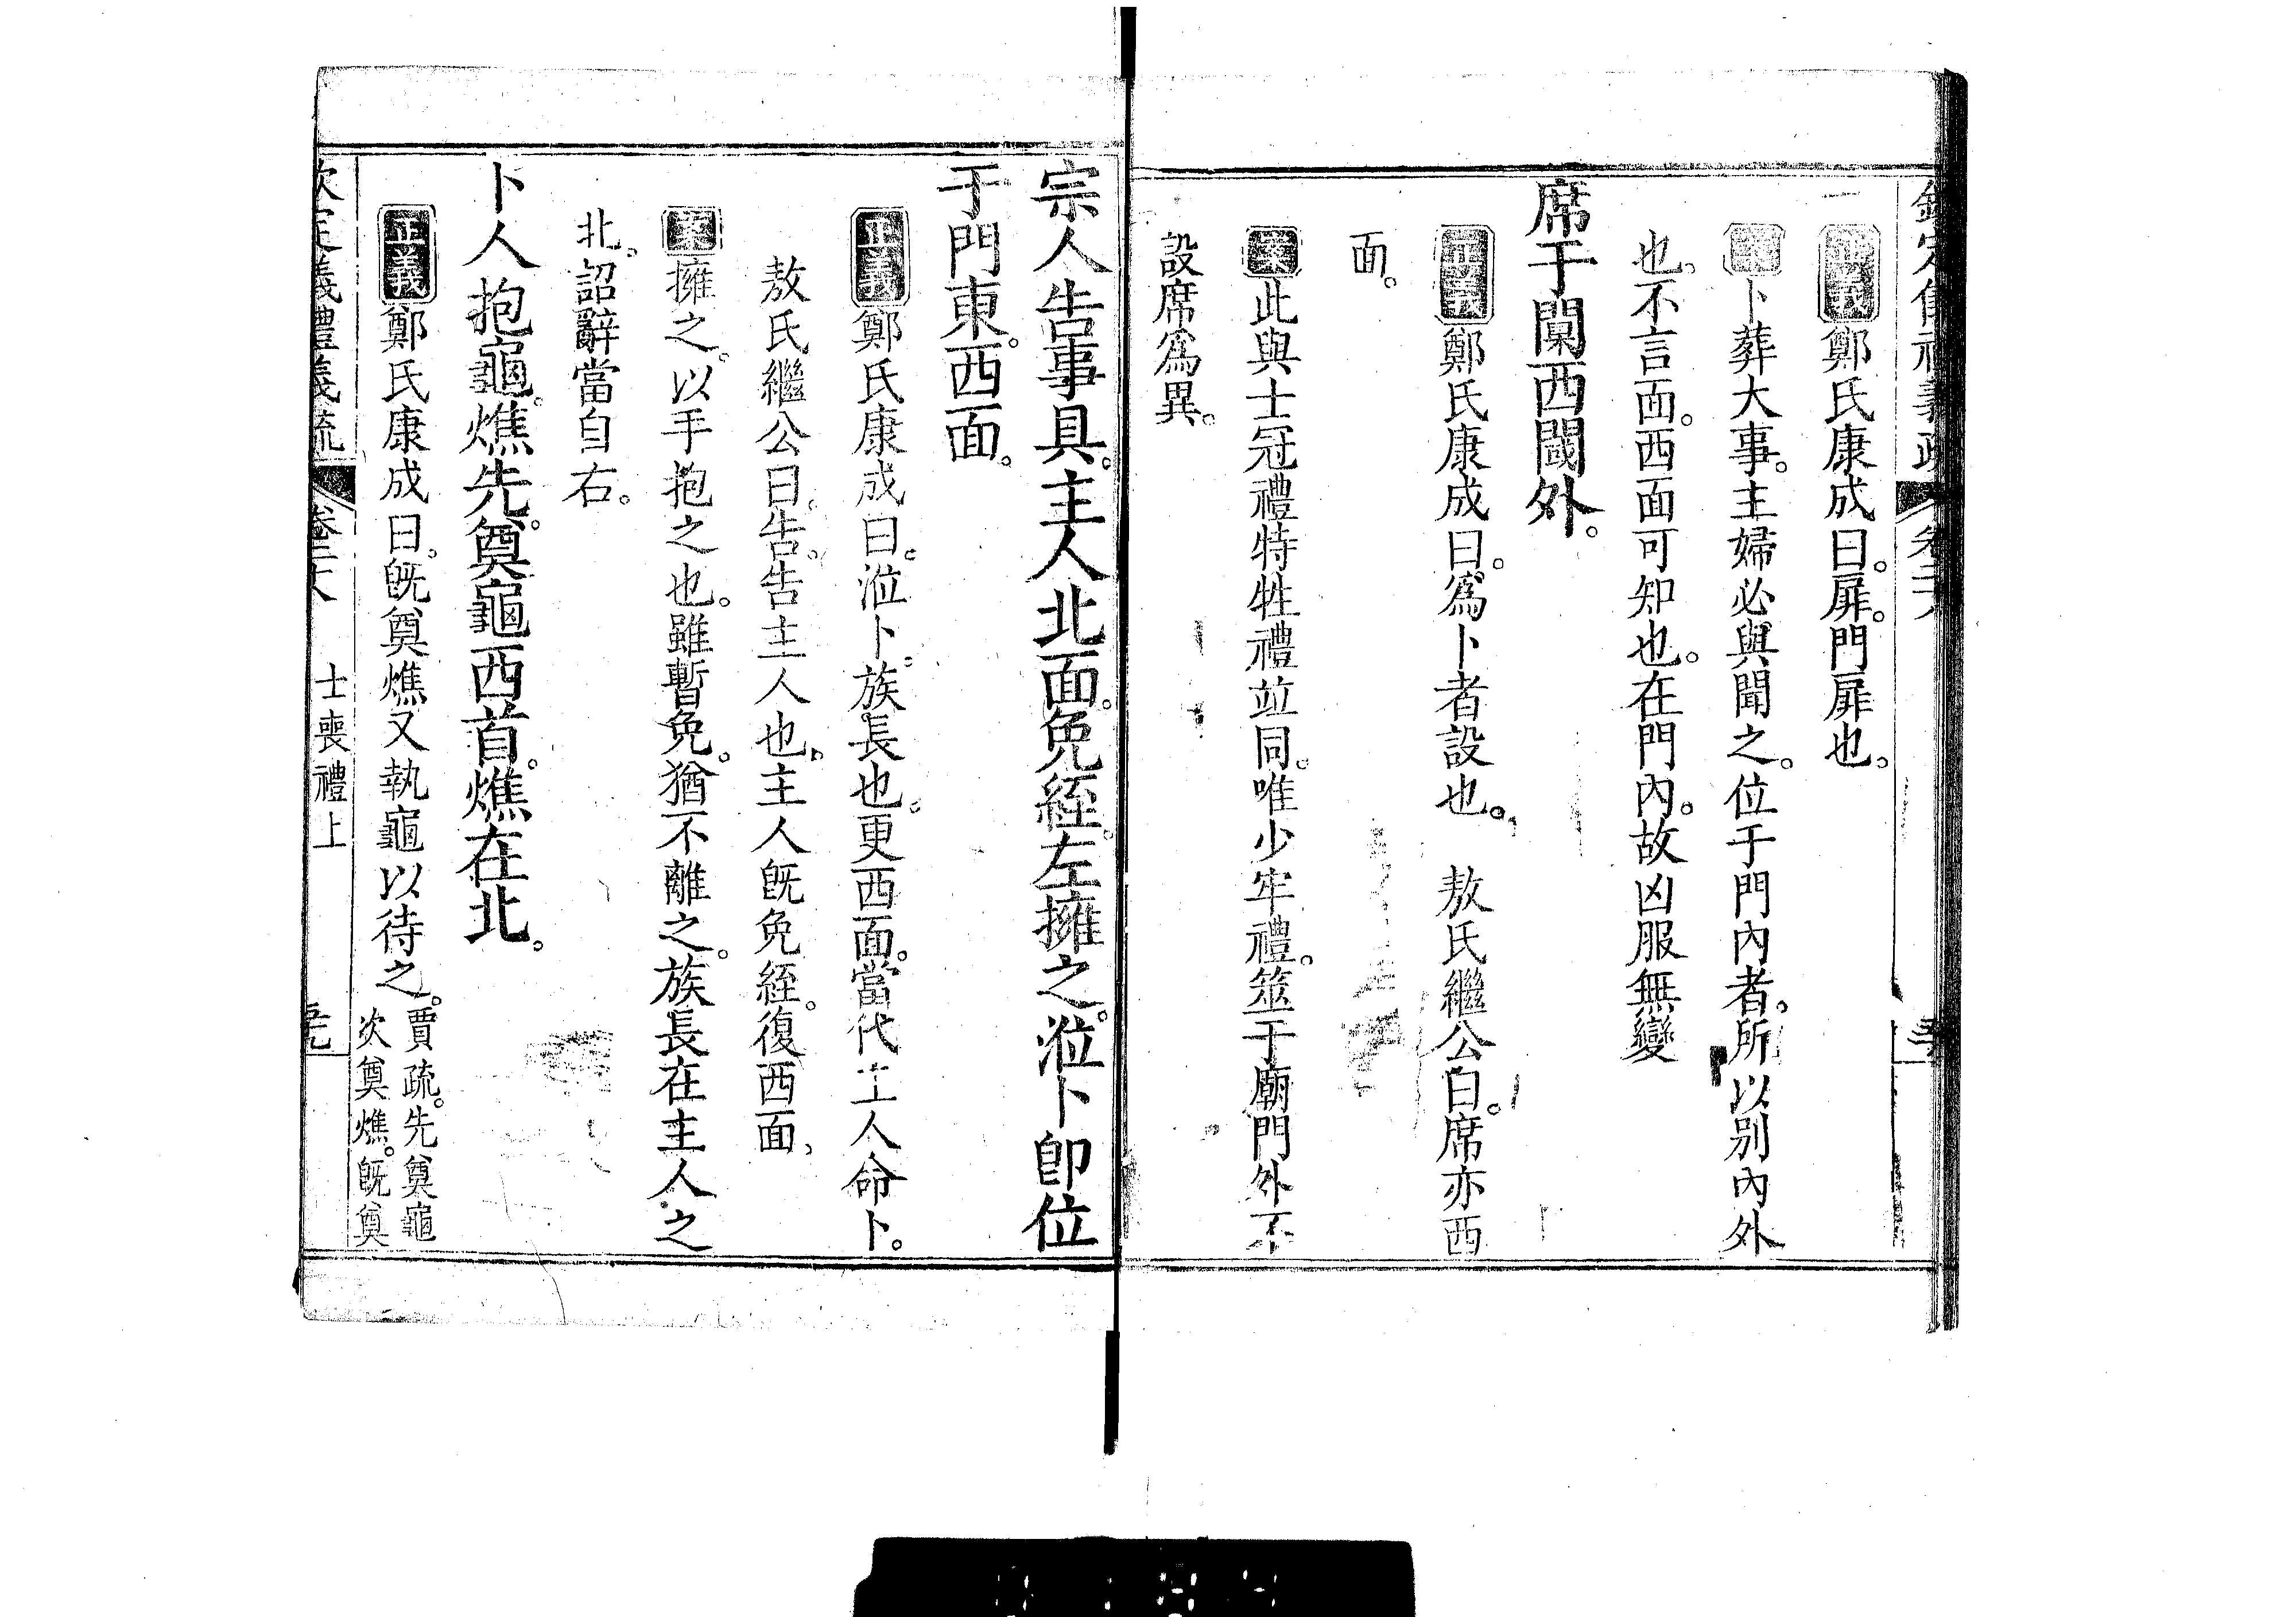 正義鄭氏康成曰。扉。門扉也。
案卜葬大事。主婦必與聞之。位于門內者。所以別內外
也。不言面。西面可知也。在門內。故凶服無變
席于闑西閾外。
正義鄭氏康成曰。爲卜者設也。 敖氏繼公曰。席亦西
面。
案此與士冠禮特牲禮竝同。唯少牢禮。筮于廟門外不
設席爲異。
宗人告事具。主人北面。免絰。左擁之。涖卜卽位
于門東。西面。
正義鄭氏康成曰。涖卜。族長也。更西面。當代主人命卜。
敖氏繼公曰。告。告主人也。主人旣免絰。復西面、
案擁之。以手抱之也。雖暫免。猶不離之。族長在主人之
北。詔辭當自右。
卜人抱龜燋。先奠龜西首。燋在北。
正義鄭氏康成曰。旣奠燋又執龜以待之。賈疏。先奠龜
次奠燋。旣奠
欽定義禮義疏 卷二十八 士喪禮上